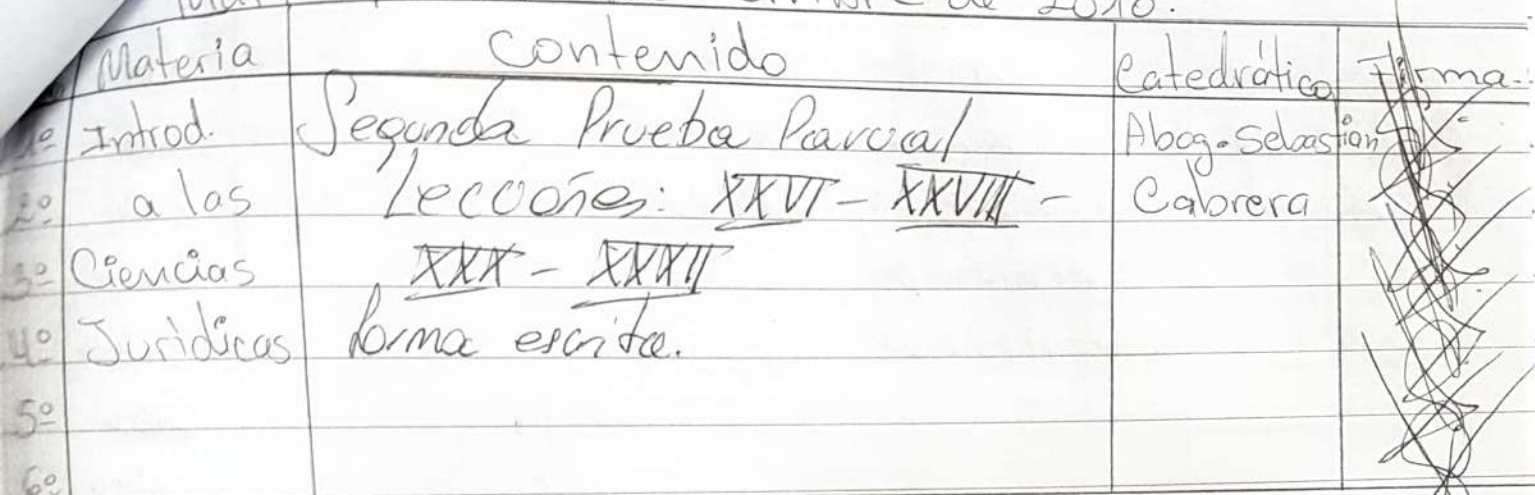 de 2010.
Materia Contenido Catedrático Firma
1º Introd. Segunda Prueba Parcial Abog. Sebastian
2º a las Lecciones: XXVI - XXVIII - Cabrera
3º Ciencias XXX - XXXII
4º Juridicas forma escrita.
5º
6º